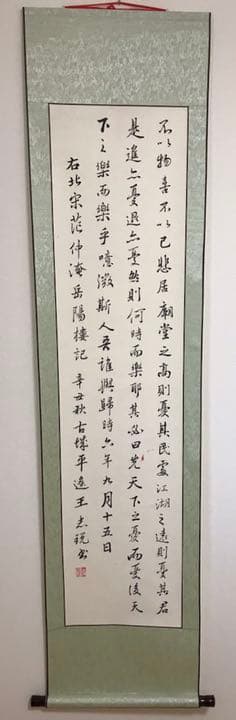 不以物喜不以己悲居廟堂之高則憂其民處江湖之遠則憂其君
是進亦憂退亦憂然則何時而樂耶其必曰先天下之憂而憂後天
下之樂而樂乎噫微斯人吾誰與歸時六年九月十五日
右北宋范仲淹岳陽樓記 辛丑秋古城平遙王